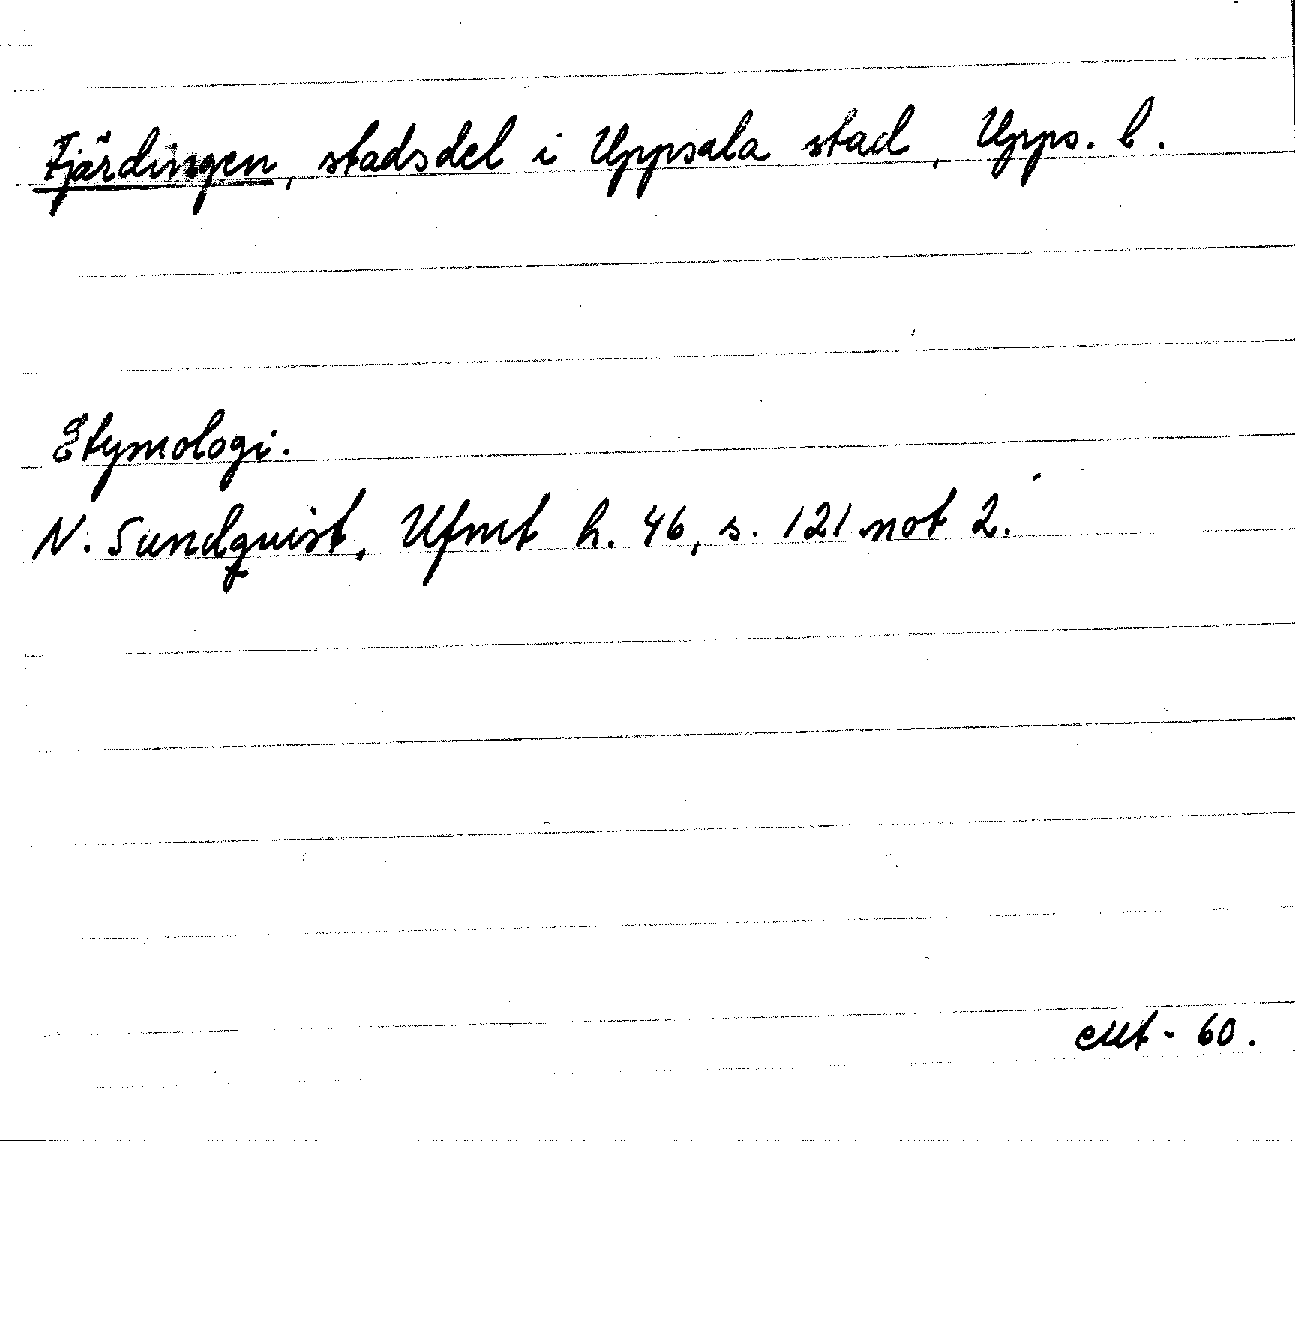 Fjärdingen, stadsdel i Uppsala stad, Upps. l.
Etymologi.
N. Sundquist, Ufmt h. 46, s. 121 not 2.
60.